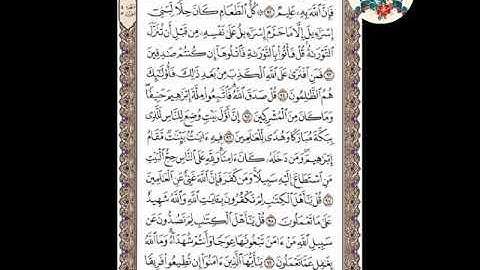 فَإِنَّ ٱللَّهَ بِهِۦ عَلِيمٌ ٩٢ ۞ كُلُّ ٱلطَّعَامِ كَانَ حِلًّا لِّبَنِىٓ
إِسْرَٰٓءِيلَ إِلَّا مَا حَرَّمَ إِسْرَٰٓءِيلُ عَلَىٰ نَفْسِهِۦ مِن قَبْلِ أَن تُنَزَّلَ
ٱلتَّوْرَىٰةُ قُلْ فَأْتُوا۟ بِٱلتَّوْرَىٰةِ فَٱتْلُوهَآ إِن كُنتُمْ صَٰدِقِينَ
٩٣ فَمَنِ ٱفْتَرَىٰ عَلَى ٱللَّهِ ٱلْكَذِبَ مِنۢ بَعْدِ ذَٰلِكَ فَأُو۟لَٰٓئِكَ
هُمُ ٱلظَّٰلِمُونَ ٩٤ قُلْ صَدَقَ ٱللَّهُ فَٱتَّبِعُوا۟ مِلَّةَ إِبْرَٰهِيمَ حَنِيفًا
وَمَا كَانَ مِنَ ٱلْمُشْرِكِينَ ٩٥ إِنَّ أَوَّلَ بَيْتٍ وُضِعَ لِلنَّاسِ لَلَّذِى
بِبَكَّةَ مُبَارَكًا وَهُدًى لِّلْعَٰلَمِينَ ٩٦ فِيهِ ءَايَٰتٌۢ بَيِّنَٰتٌ مَّقَامُ
إِبْرَٰهِيمَ وَمَن دَخَلَهُۥ كَانَ ءَامِنًا وَلِلَّهِ عَلَى ٱلنَّاسِ حِجُّ ٱلْبَيْتِ
مَنِ ٱسْتَطَاعَ إِلَيْهِ سَبِيلًا وَمَن كَفَرَ فَإِنَّ ٱللَّهَ غَنِىٌّ عَنِ ٱلْعَٰلَمِينَ
٩٧ قُلْ يَٰٓأَهْلَ ٱلْكِتَٰبِ لِمَ تَكْفُرُونَ بِـَٔايَٰتِ ٱللَّهِ وَٱللَّهُ شَهِيدٌ
عَلَىٰ مَا تَعْمَلُونَ ٩٨ قُلْ يَٰٓأَهْلَ ٱلْكِتَٰبِ لِمَ تَصُدُّونَ عَن
سَبِيلِ ٱللَّهِ مَنْ ءَامَنَ تَبْغُونَهَا عِوَجًا وَأَنتُمْ شُهَدَآءُ وَمَا ٱللَّهُ
بِغَٰفِلٍ عَمَّا تَعْمَلُونَ ٩٩ يَٰٓأَيُّهَا ٱلَّذِينَ ءَامَنُوٓا۟ إِن تُطِيعُوا۟ فَرِيقًا